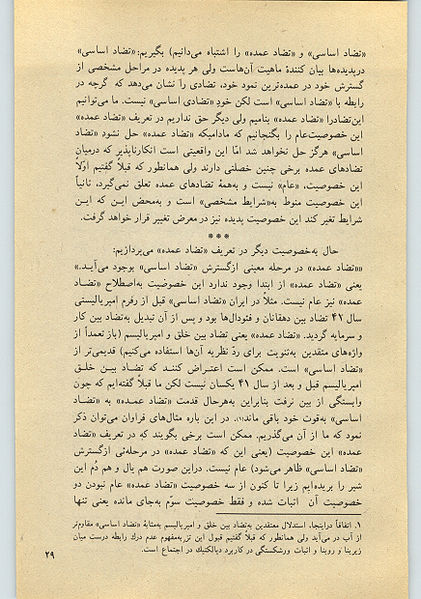 «تضاد اساسی» و «تضاد عمده» را اشتباه می‌دانیم) بگیریم: «تضاد اساسی»
درپدیده‌ها بیان کنندهٔ ماهیت آن‌هاست ولی هر پدیده در مراحل مشخصی از
گسترش خود در عمده‌ترین نمود خود، تضادی را نشان می‌دهد که گرچه در
رابطه با «تضاد اساسی» است لکن خود «تضادی اساسی» نیست. ما می‌توانیم
این‌تضادرا «تضاد عمده» بنامیم ولی دیگر حق نداریم در تعریف «تضاد عمده»
این خصوصیت‌عام را بگنجانیم که مادامیکه «تضاد عمده» حل نشود «تضاد
اساسی» هرگز حل نخواهد شد امّا این واقعیتی است انکارناپذیر که درمیان
تضادهای عمده برخی چنین خصلتی دارند ولی همانطور که قبلاً گفتیم اولاً
این خصوصیت، «عام» نیست و به‌همهٔ تضادهای عمده تعلق نمی‌گیرد، ثانیاً
این خصوصیت منوط به«شرایط مشخصی» است و به‌محض ایـن که ایـن
شرایط تغیر کند این خصوصیت پدیده نیز در معرض تغییر قرار خواهد گرفت.
***
حال به‌خصوصیت دیگر در تعریف «تضاد عمده» می‌پردازیم:
««تضاد عمده» در مرحله معینی ازگسترش «تضاد اساسی» بوجود می‌آیـد.»
یعنی «تضاد عمده» از ابتدا وجود ندارد این خصوصیت به‌اصطلاح «تضـاد
عمده» نیز عام نیست. مثلاً در ایران «تضاد اساسی» قبل از رفرم امپریالیستی
سال ۴۲ تضاد بین دهقانان و فئودال‌ها بود و پس از آن تبدیل به‌تضاد بین کار
و سرمایه گردید. «تضاد عمده» یعنی تضاد بین خلق و امپریالیسم (باز تعمداً از
واژه‌های منقدین به‌تئویت برای ردّ نظریه آن‌ها استفاده می‌کنیم) قدیمی‌تر از
«تضاد اساسی» است. ممکن است اعتراض کننـد که تضاد بیـن خلـق
امپریالیسم قبل و بعد از سال ۴۱ یکسان نیست لکن ما قبلاً گفته‌ایم که چون
وابستگی از بین نرفت بنابراین به‌هرحال قدمت «تضاد عمـده» به «تضـاد
اساسی» به‌قوت خود باقی ماند(۱). در این باره مثال‌های فراوان می‌توان ذکر
نمود که ما از آن می‌گذریم. ممکن است برخی بگویند که در تعریف «تضاد
عمده» این خصوصیت (یعنی این که «تضاد عمده» در مرحله‌ئی ازگسترش
«تضاد اساسی» ظاهر می‌شود) عام نیست. دراین صورت هم یال و هم دُم این
شیر را بریده‌ایم زیرا تا کنون از سه خصوصیت «تضاد عمده» عام نبودن دو
خصوصیت آن اثبات شده و فقط خصوصیت سوّم به‌جای مانده یعنی تنها
۱. اتفاقاً دراینجا، استدلال معتقدین به‌تضاد بین خلق و امپریالیسم به‌مثابهٔ «تضاد اساسی» مقاوم‌تر
از آب در می‌آید ولی همانطور که قبلاً گفتیم قبول این تز به‌مفهوم عدم درك رابطه درست میان
زیربنا و روبنا و اثبات ورشکستگی در کاربرد دیالکتیك در اجتماع است.
۲۹